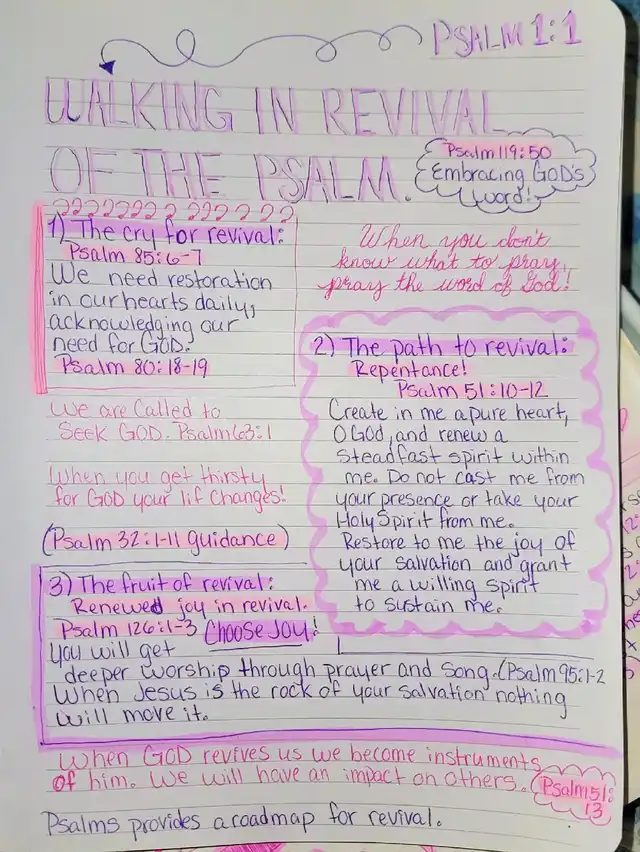 PSALM 1:1
WALKING IN REVIVAL
OF THE PSALM.
Psalm 119:50
Embracing GOD'S
word!
1) The cry for revival:
Psalm 85:6-7
We need restoration
in our hearts daily,
acknowledging our
need for GOD.
Psalm 80:18-19
When you don't
know what to pray,
pray the word of God!
We are Called to
Seek GOD. Psalm 63:1
When you get thirsty
for GOD your lif Changes!
(Psalm 32:1-11 guidance)
2) The path to revival:
Repentance!
Psalm 51:10-12
Create in me a pure heart,
O God, and renew a
Steadfast spirit within
me. Do not cast me from
your presence or take your
Holy Spirit from me.
Restore to me the joy of
your salvation and grant
me a willing spirit
to sustain me.
3) The fruit of revival:
Renewed joy in revival.
Psalm 126:1-3 Choose Joy!
You will get
deeper worship through prayer and song. (Psalm 95:1-2
When Jesus is the rock of your salvation nothing
will move it.
When GOD revives us we become instruments
of him. We will have an impact on others.
Psalm 51:
13
Psalms provides a roadmap for revival.